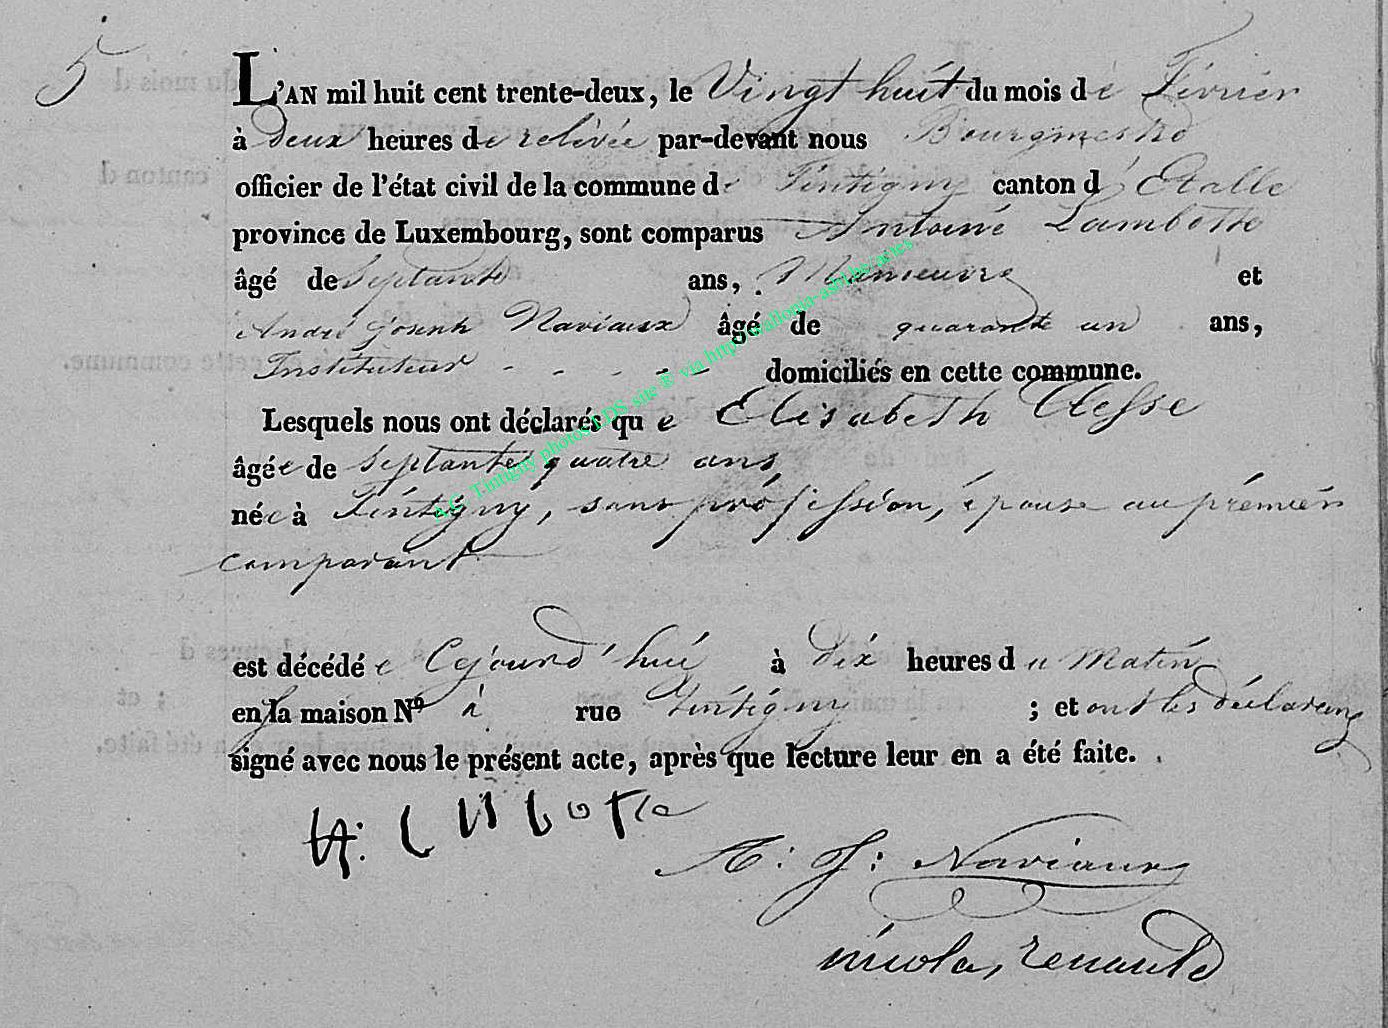 5
L'AN mil huit cent trente-deux, le Vingt huit du mois de Février
à Deux heures de relévée par-devant nous Bourgmestre
officier de l'état civil de la commune de Tintigny canton d'Etalle
province de Luxembourg, sont comparus Antoine Lambotte
âgé de Septante ans, Manœuvre et
André Joseph Naviaux âgé de quarante un ans,
Instituteur - - - - - domiciliés en cette commune.
Lesquels nous ont déclarés que Elisabeth Clesse
âgée de septante quatre ans,
née à Tintigny, sans proféssion, épouse au prémier
comparant
est décédée Cejourd'hui à dix heures du Matin
en la maison Nº à rue Tintigny ; et ont les déclarans
signé avec nous le présent acte, après que lecture leur en a été faite.
A: J: Naviaux
nicolas renauld
A.C. Tintigny photos LDS site ® via http://wallonia-asbl.be/actes